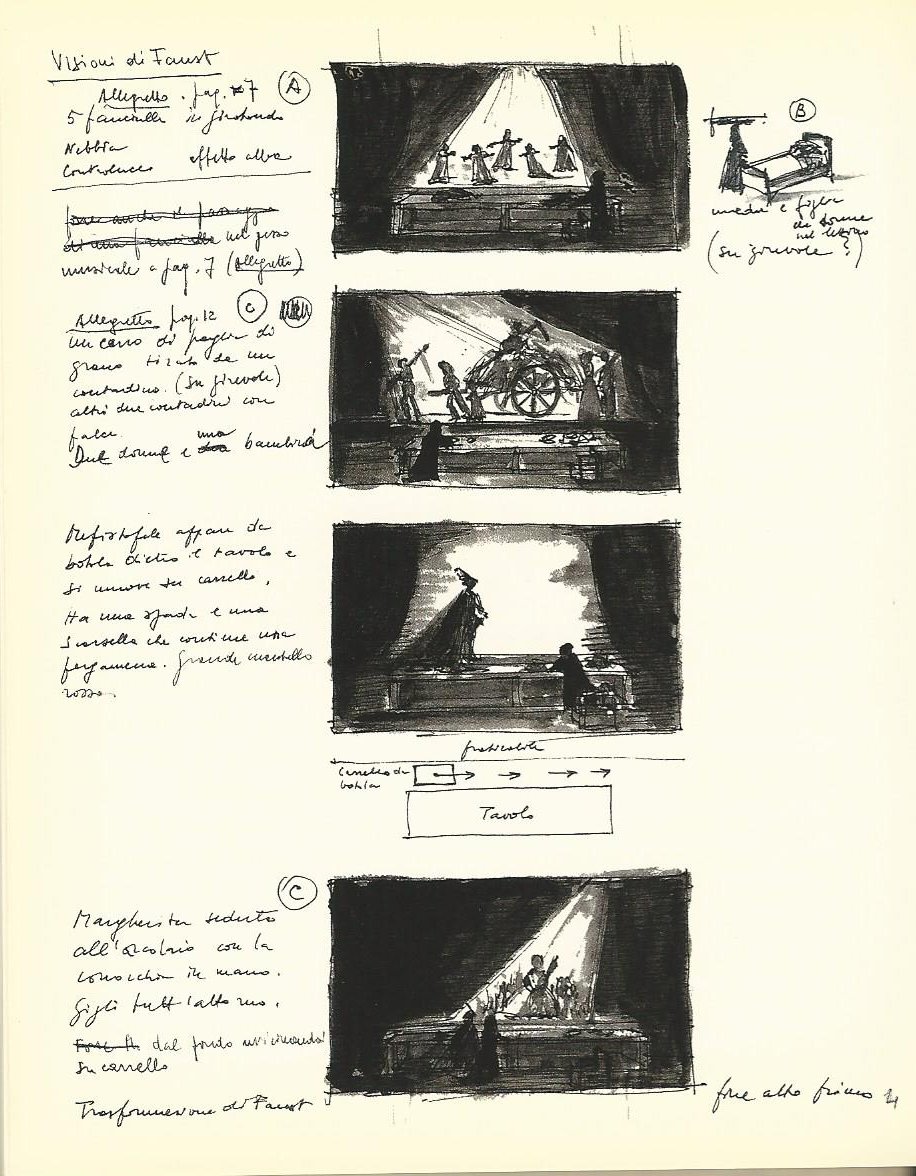 Visioni di Faust
Allegretto . pag. 7 A
5 fanciulle in girotondo
Nebbia
Controluce effetto alba
B
madre e figlia
(su girevole?)
forse anche il passaggio
di una fanciulla nel pezzo
musicale a pag. 7 (Allegretto)
C
Allegretto pag. 12
un carro di paglia di
grano tirato da un
contadino. (su girevole)
altri due contadini con
falce.
Due donne e una bambina
Mefistofele appare da
botola dietro il tavolo e
si muove su carrello.
Ha una spada e una
scarsella che contiene una
pergamena. Grande mantello
rosso.
praticabile
Carrello da
botola
Tavolo
C
Margherita seduta
all'arcolaio con la
conocchia in mano.
Gigli tutt'attorno.
dal fondo avvicinando
su carrello
Trasformazione di Faust
fine atto primo